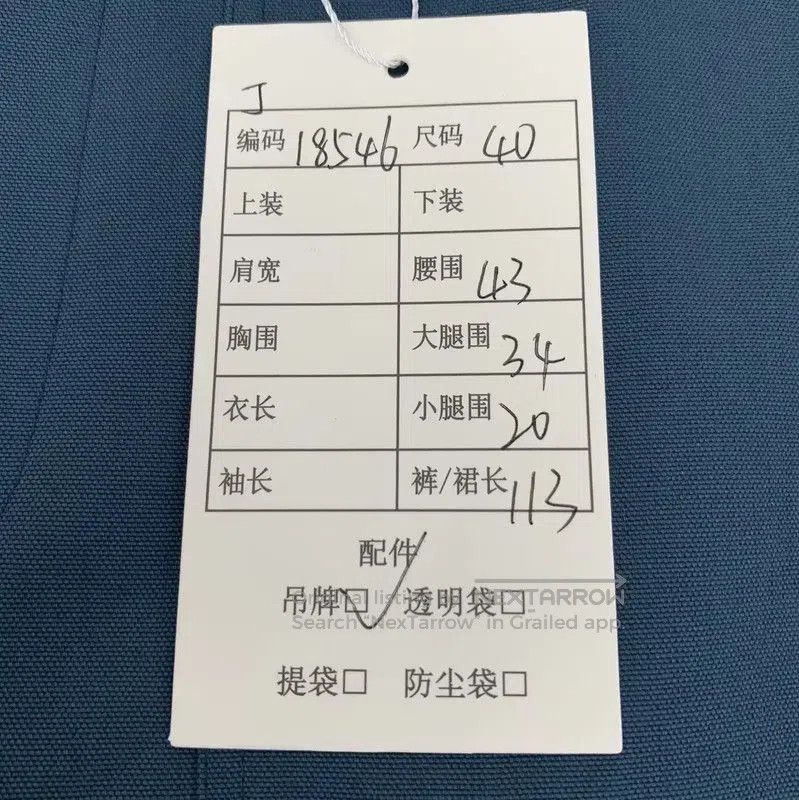 J
编码 18546 尺码 40
上装 下装
肩宽 腰围 43
胸围 大腿围 34
衣长 小腿围 20
袖长 裤/裙长 113
配件
吊牌□ 透明袋□
NEXTARROW
Search "NexTarrow" in Grailed app
提袋□ 防尘袋□